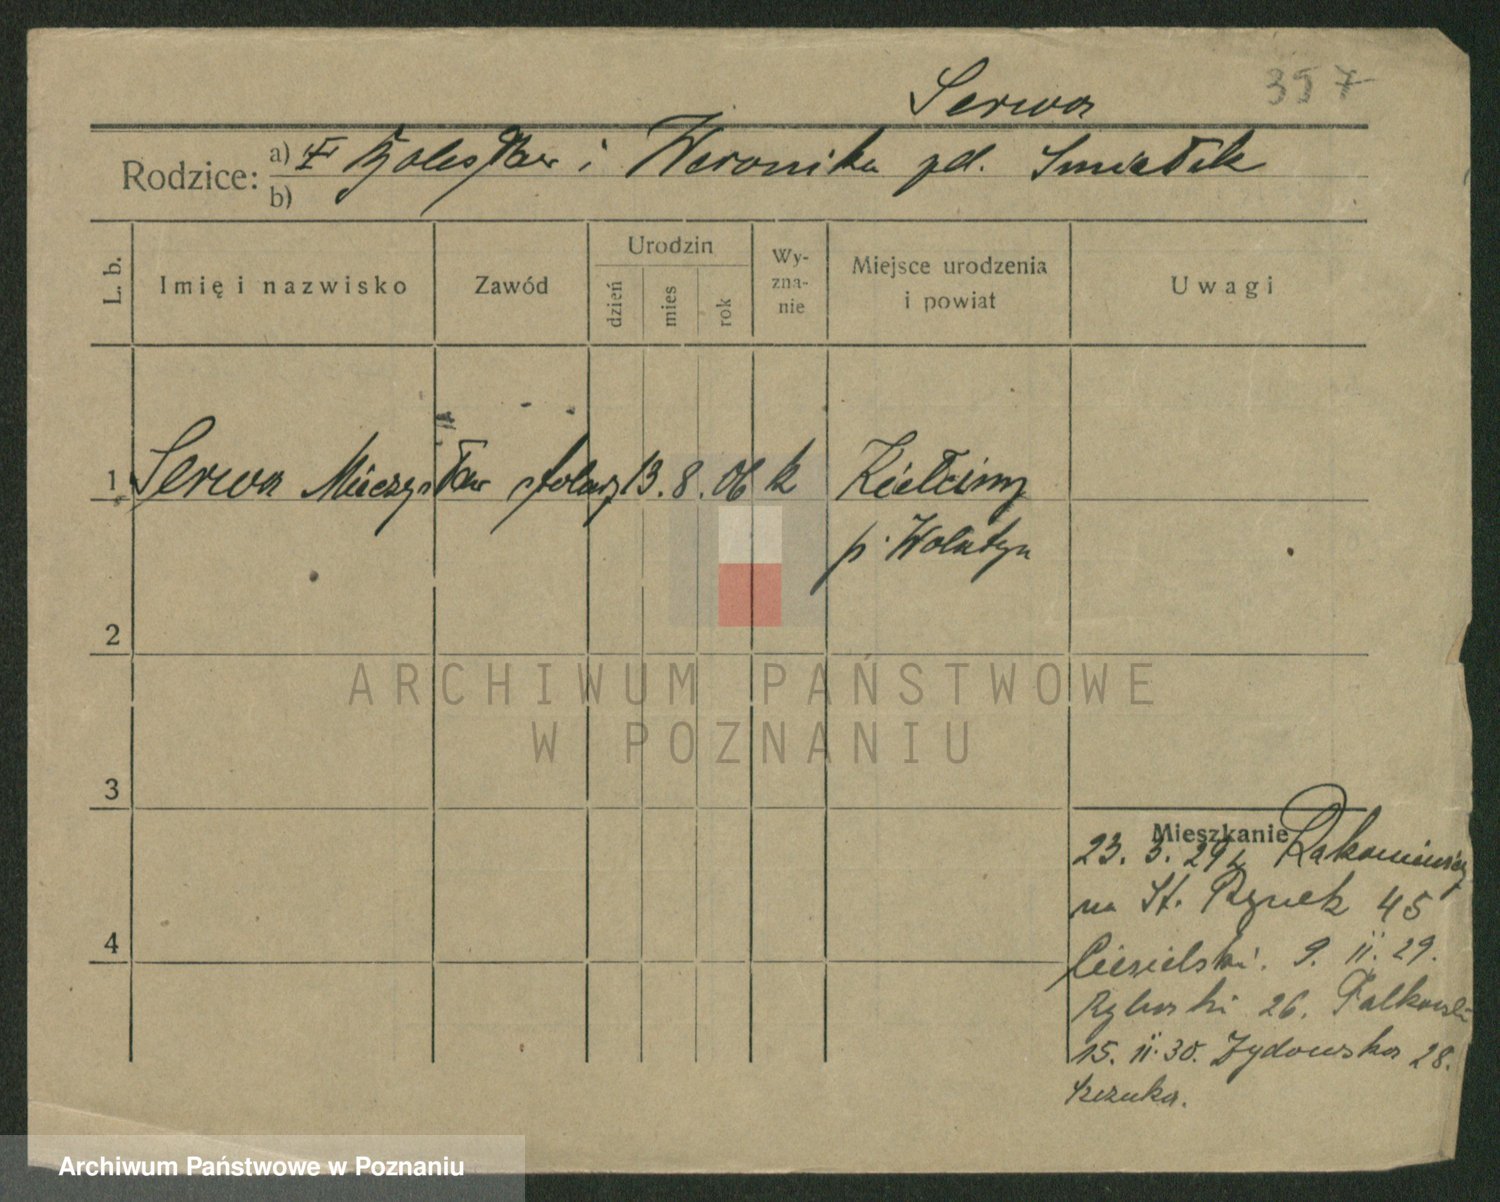 Serwa 357
Rodzice: a) Bolesław i Weronika zd. Śmiałek
b)
L. b. Imię i nazwisko Zawód Urodzin dzień mies rok Wy-zna-nie Miejsce urodzenia i powiat Uwagi
1 Serwa Mieczysław stolarz 13. 8. 06 k Kiełciny
p. Wolsztyn
2
ARCHIWUM PAŃSTWOWE
W POZNANIU
3
Mieszkanie
23. 3. 29 z
na St. Rynek 45
Ciesielski. 9. II. 29.
Rybaki 26. Falkowski
15. II. 30. Żydowska 28.
4
Szczuka.
Archiwum Państwowe w Poznaniu